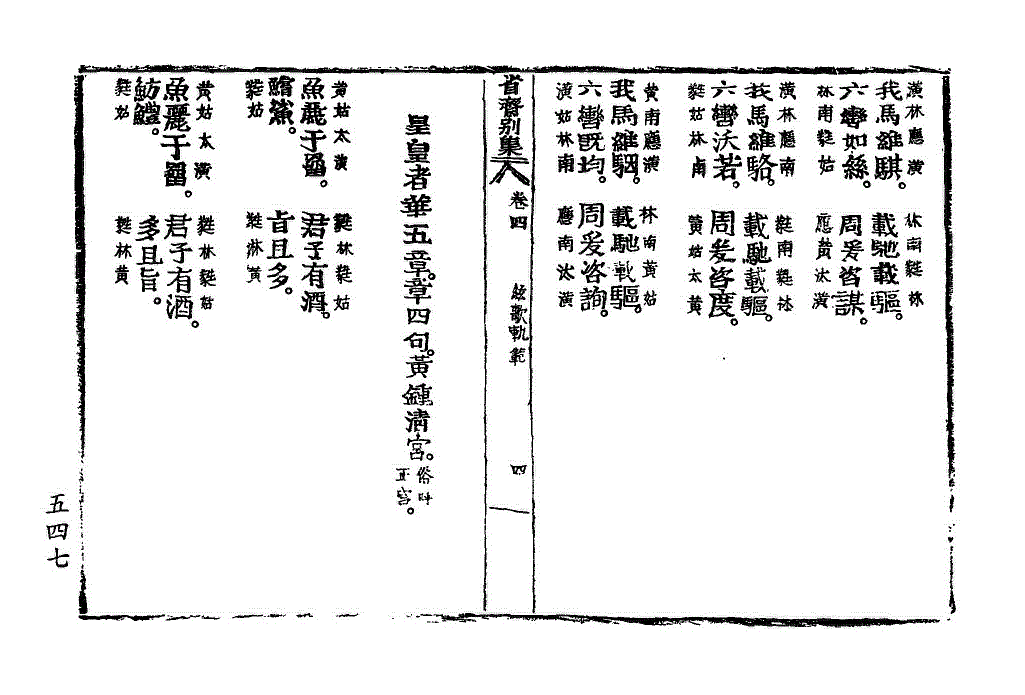 潢林應潢　林南蕤林
我馬維騏。載馳載驅。
六轡如絲。周爰咨謀。
林南蕤姑　應黃汰潢
潢林應南　蕤南蕤林
我馬維駱。載馳載驅。
六轡沃若。周爰咨度。
蕤姑林南　黃姑太黃
黃南應潢　林南黃姑
我馬維駰。載馳載驅。
六轡既均。周爰咨詢。
潢姑林南　應南汰潢
省齋别集　卷四　絃歌軌範　四
皇皇者華五章。章四句。黃鍾清宮。俗呼正宮。
黃姑太潢　蕤林蕤姑
魚麗于罶。君子有酒。
鱨鯊。旨且多。
蕤姑　蕤林黃
黃姑太潢　蕤林蕤姑
魚麗于罶。君子有酒。
魴鱧。多且旨。
蕤姑　蕤林黃
五四七